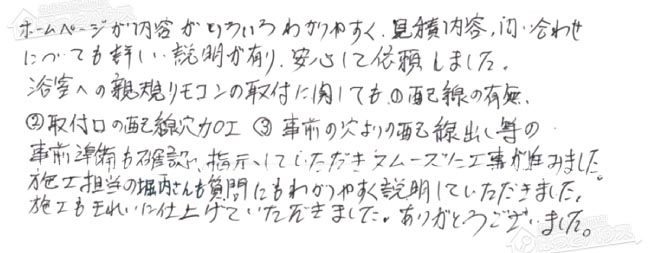 ホームページが内容がいろいろわかりやすく、見積内容、問い合わせ
についても詳しい説明が有り、安心して依頼しました。
浴室への親規リモコンの取付に関しても、①配線の有無、
②取付口の配線穴加工 ③事前の穴よりの配線出し等の
事前準備も確認、指示していただきスムーズに工事が進みました。
施工担当の堀内さんも質問にもわかりやすく説明していただきました。
施工もきれいに仕上げていただきました。ありがとうございました。